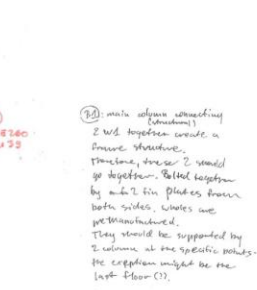 7.1: main column connecting
(structural)
2 W1 together create a
frame structure.
Therefore, these 2 should
go together. Bolted together
by 2 fin plates from
both sides, wholes are
premanufactured.
They should be supported by
2 column at the specific points.
the exception might be the
last floor (?).